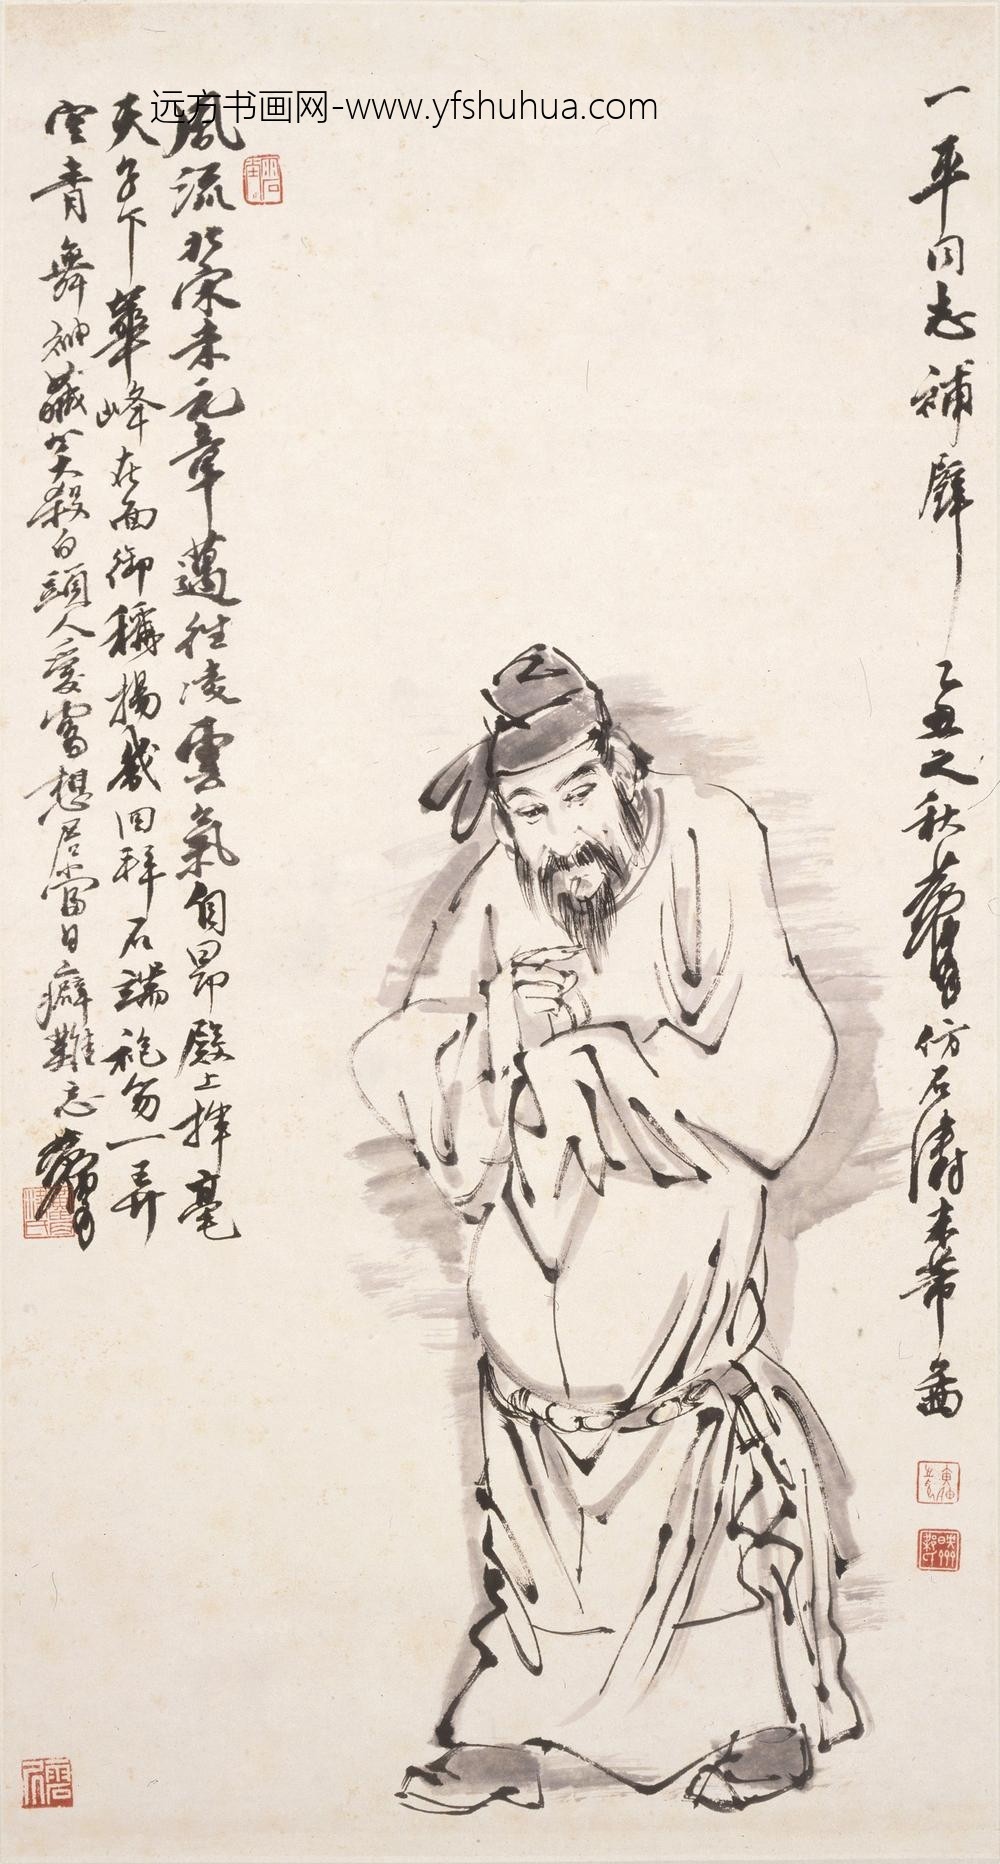 远方书画网-www.yfshuhua.com
一平同志補壁
乙丑之秋
仿石濤米芾畫
風流北宋米元章邁往凌雲氣自昂殿上揮毫
天子下華峰在面御稱揚幾回拜石端袍笏一弄
空青舞袖藏笑殺白頭人愛寫想居當日癖難忘